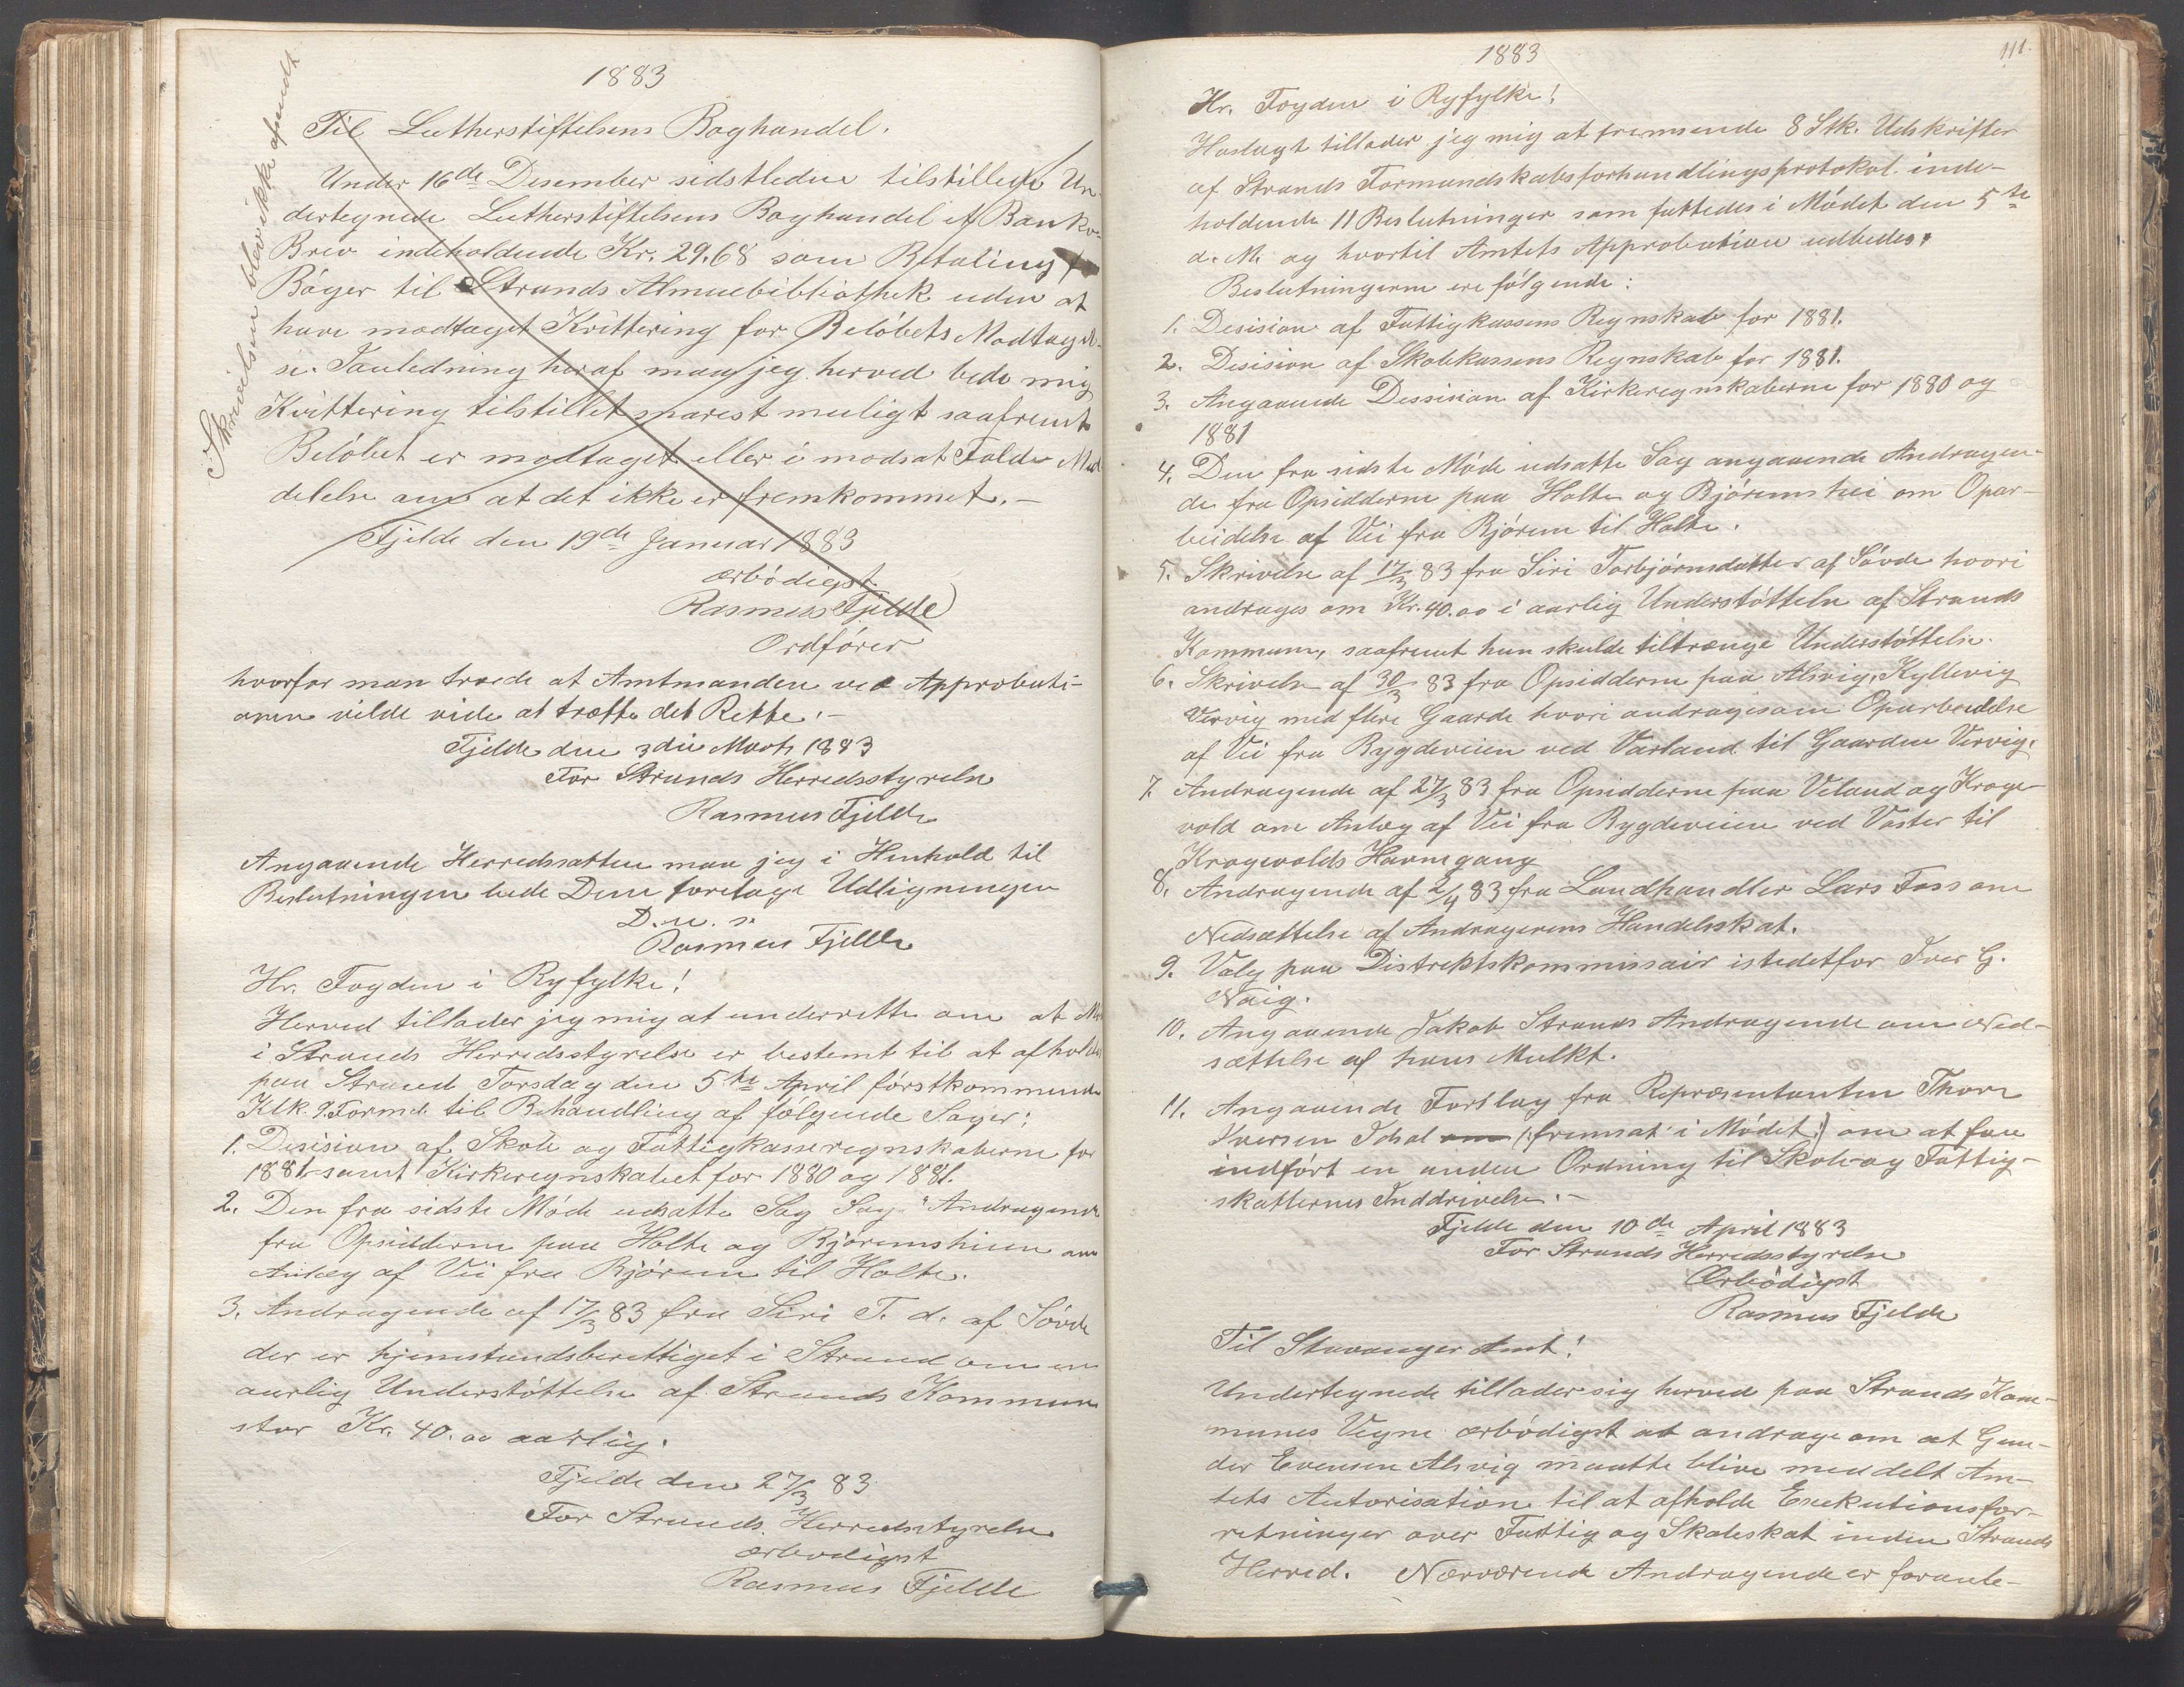 1883
Skrivelsen blev ikke afsendt
Til Lutherstiftelsens Boghandel.
Under 16de Desember sidstleden tilstillede Un-
dertegnede Lutherstiftelsens Boghandel et Banko-
Brev indeholdende Kr. 29.68 som Betaling for
Bøger til Strands Almuebibliothek uden at
have modtaget Kvittering for Beløbets Modtagel-
se. I anledning heraf maa jeg herved bede mig
Kvittering tilstillet snarest muligt saafremt
Beløbet er modtaget eller i modsat Fald Med
delelse om at det ikke er fremkommet. –
Fjelde den 19de Januar 1883
ærbødigst
Rasmus Fjelde
Ordfører
hvorfor man troede at Amtmanden ved Approbati-
onen vilde vide at træffe det Rette. –
Fjelde den 3die Marts 1883
For Strands Herredsstyrelse
Rasmus Fjelde
Angaaende Herredsatten maa jeg i Henhold til
Beslutningen bede Dem foretage Udligningen
D. u. s.
Rasmus Fjelde
Hr. Fogden i Ryfylke!
Herved tillader jeg mig at underrette om at Mø
i Strands Herredsstyrelse er bestemt til at afholdes
paa Strand Torsdag den 5te April førstkommende
Klk. 9 Formd. til Behandling af følgende Sager:
1. Desision af Skole og Fattigkasseregnskaberne for
1881 samt Kirkeregnskabet for 1880 og 1881.
2. Den fra sidste Møde udsatte Sag Sag "Andragende
fra Opsidderne paa Holte og Bjøremsheien om
Anlæg af Vei fra Bjørem til Holte.
3. Andragende af 17/3 83 fra Siri T. d. af Søvde
der er hjemstundsberettiget i Strand om en
aarlig Understøttelse af Strands Kommune
stor Kr. 40.00 aarlig.
Fjelde den 27/3 83
For Strands Herredsstyrelse
ærbødigst
Rasmus Fjelde
1883
111.
Hr. Fogden i Ryfylke!
Hoslagt tillader jeg mig at fremsende 8 Stk. Udskrifter
af Strands Formandskabsforhandlingsprotokol inde-
holdende 11 Beslutninger som fattedes i Mødet den 5te
d. M. og hvortil Amtets Approbation udbedes.
Beslutningerne ere følgende:
1. Desision af Fattigkassens Regnskab for 1881.
2. Desision af Skolekassens Regnskab for 1881.
3. Angaaende Dessision af Kirkeregnskaberne for 1880 og
1881
4. Den fra sidste Møde udsatte Sag angaaende Andragen-
de fra Opsidderne paa Holte og Bjøremshei om Opar-
beidelse af Vei fra Bjørem til Holte.
5. Skrivelse af 17/3 83 fra Siri Torbjørnsdatter af Søvde hvori
andrages om Kr. 40.00 i aarlig Understøttelse af Strands
Kommune, saafremt hun skulde tiltrænge Understøttelse.
6. Skrivelse af 30/3 83 fra Opsidderne paa Alsvig, Kyllevig
Vervig med flere Gaarde hvori andrages om Oparbeidelse
af Vei fra Bygdeveien ved Varland til Gaarden Vervig.
7. Andragende af 27/3 83 fra Opsidderne paa Veland og Krage-
vold om Anlæg af Vei fra Bygdeveien ved Vaster til
Kragevolds Havnegang
8. Andragende af 2/4 83 fra Landhandler Lars Foss om
Nedsættelse af Andragerens Handelsskat.
9. Valg paa Distriktskommissair istedetfor Iver G.
Nøig.
10. Angaaende Jakob Strands Andragende om Ned-
sættelse af hans Mulkt.
11. Angaaende Forslag fra Repræsentanten Thore
Iversen Idsal om (: fremsat i Mødet :) om at faa
indført en anden Ordning til Skole og Fattig-
skatternes Inddrivelse. –
Fjelde den 10de April 1883
For Strands Herredsstyrelse
Ærbødigst
Rasmus Fjelde
Til Stavanger Amt!
Undertegnede tillader sig herved paa Strands Kom-
munes Vegne ærbødigst at andrage om at Gun-
der Evensen Alsvig maatte blive meddelt Am-
tets Autorisation til at afholde Exekutionsfor-
retninger over Fattig og Skoleskat inden Strands
Herred. Nærværende Andragende er foranle-